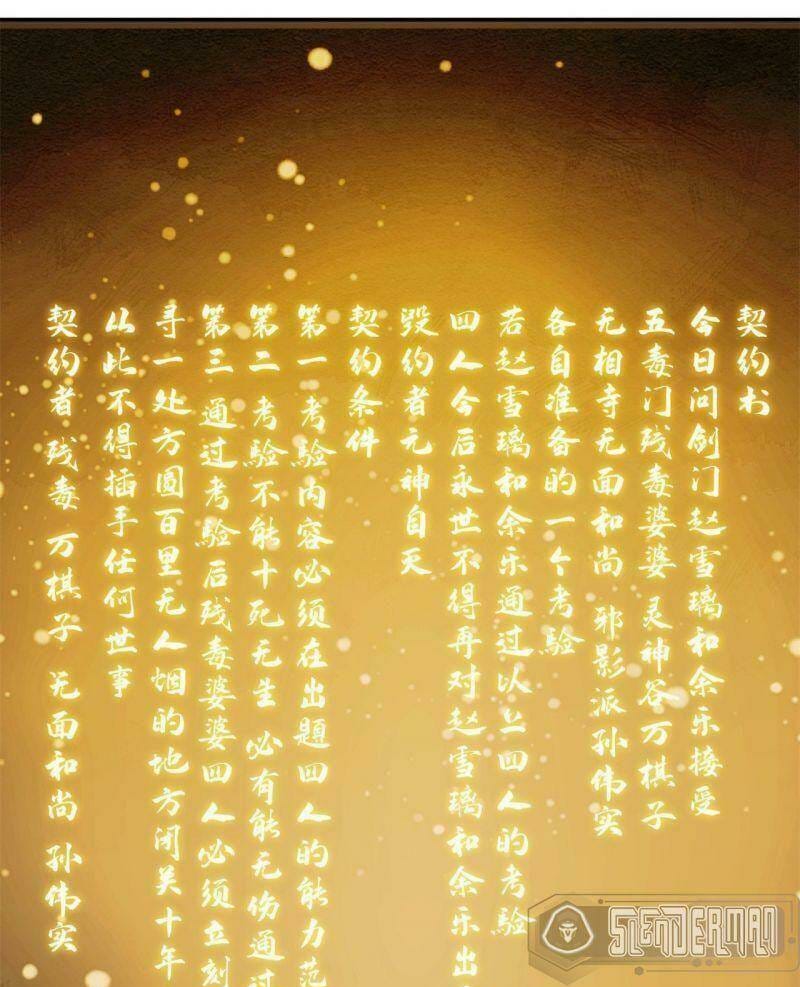 契约书
今日问剑门赵雪璃和余乐接受
五毒门残毒婆婆 灵神谷万棋子
无相寺无面和尚 邪影派孙伟实
各自准备的一个考验
若赵雪璃和余乐通过以上四人的考验
四人今后永世不得再对赵雪璃和余乐出
毁约者元神自天
契约条件
第一 考验内容必须在出题四人的能力范
第二 考验不能十死无生 必有能无伤通过
第三 通过考验后残毒婆婆四人必须立刻
寻一处方圆百里无人烟的地方闭关十年
从此不得插手任何世事
契约者 残毒 万棋子 无面和尚 孙伟实
SLENDERMAN